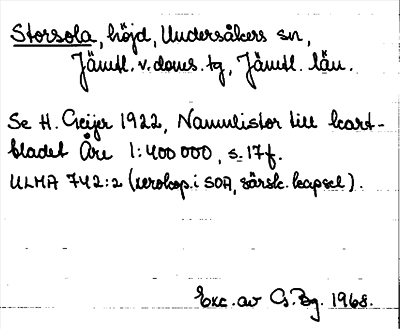 Storsola, höjd, Undersåkers sn,
Jämtl. v. doms. tg, Jämtl. län.
Se H. Geijer 1922, Namnlistor till kart-
bladet Åre 1:400 000, s. 17f.
ULMA 742:2 (xerokop. i SOA, särsk. kapsel).
Exc. av G. Bg. 1968.